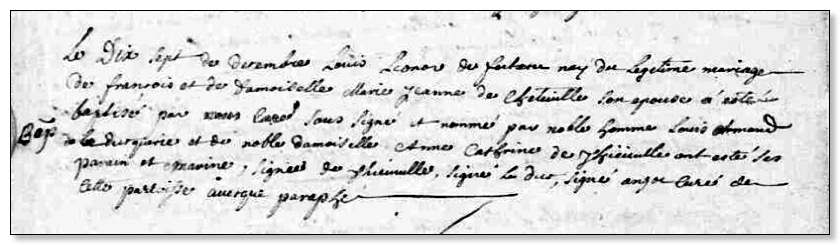 Le Dix sept de decembre Louis Leonor de nay du Legetime mariage
de francois et de Damoiselle Marie Jeanne de son epouse a esté
Bap baptisé par nous Curé sous signé et nommé par noble homme Louis
de la et de noble damoiselle Anne Cathrine de Thieuville ont esté ses
parain et maraine, signée de Thieuville, signé Le duc, signé Curé de
Cette paroisse paraphe